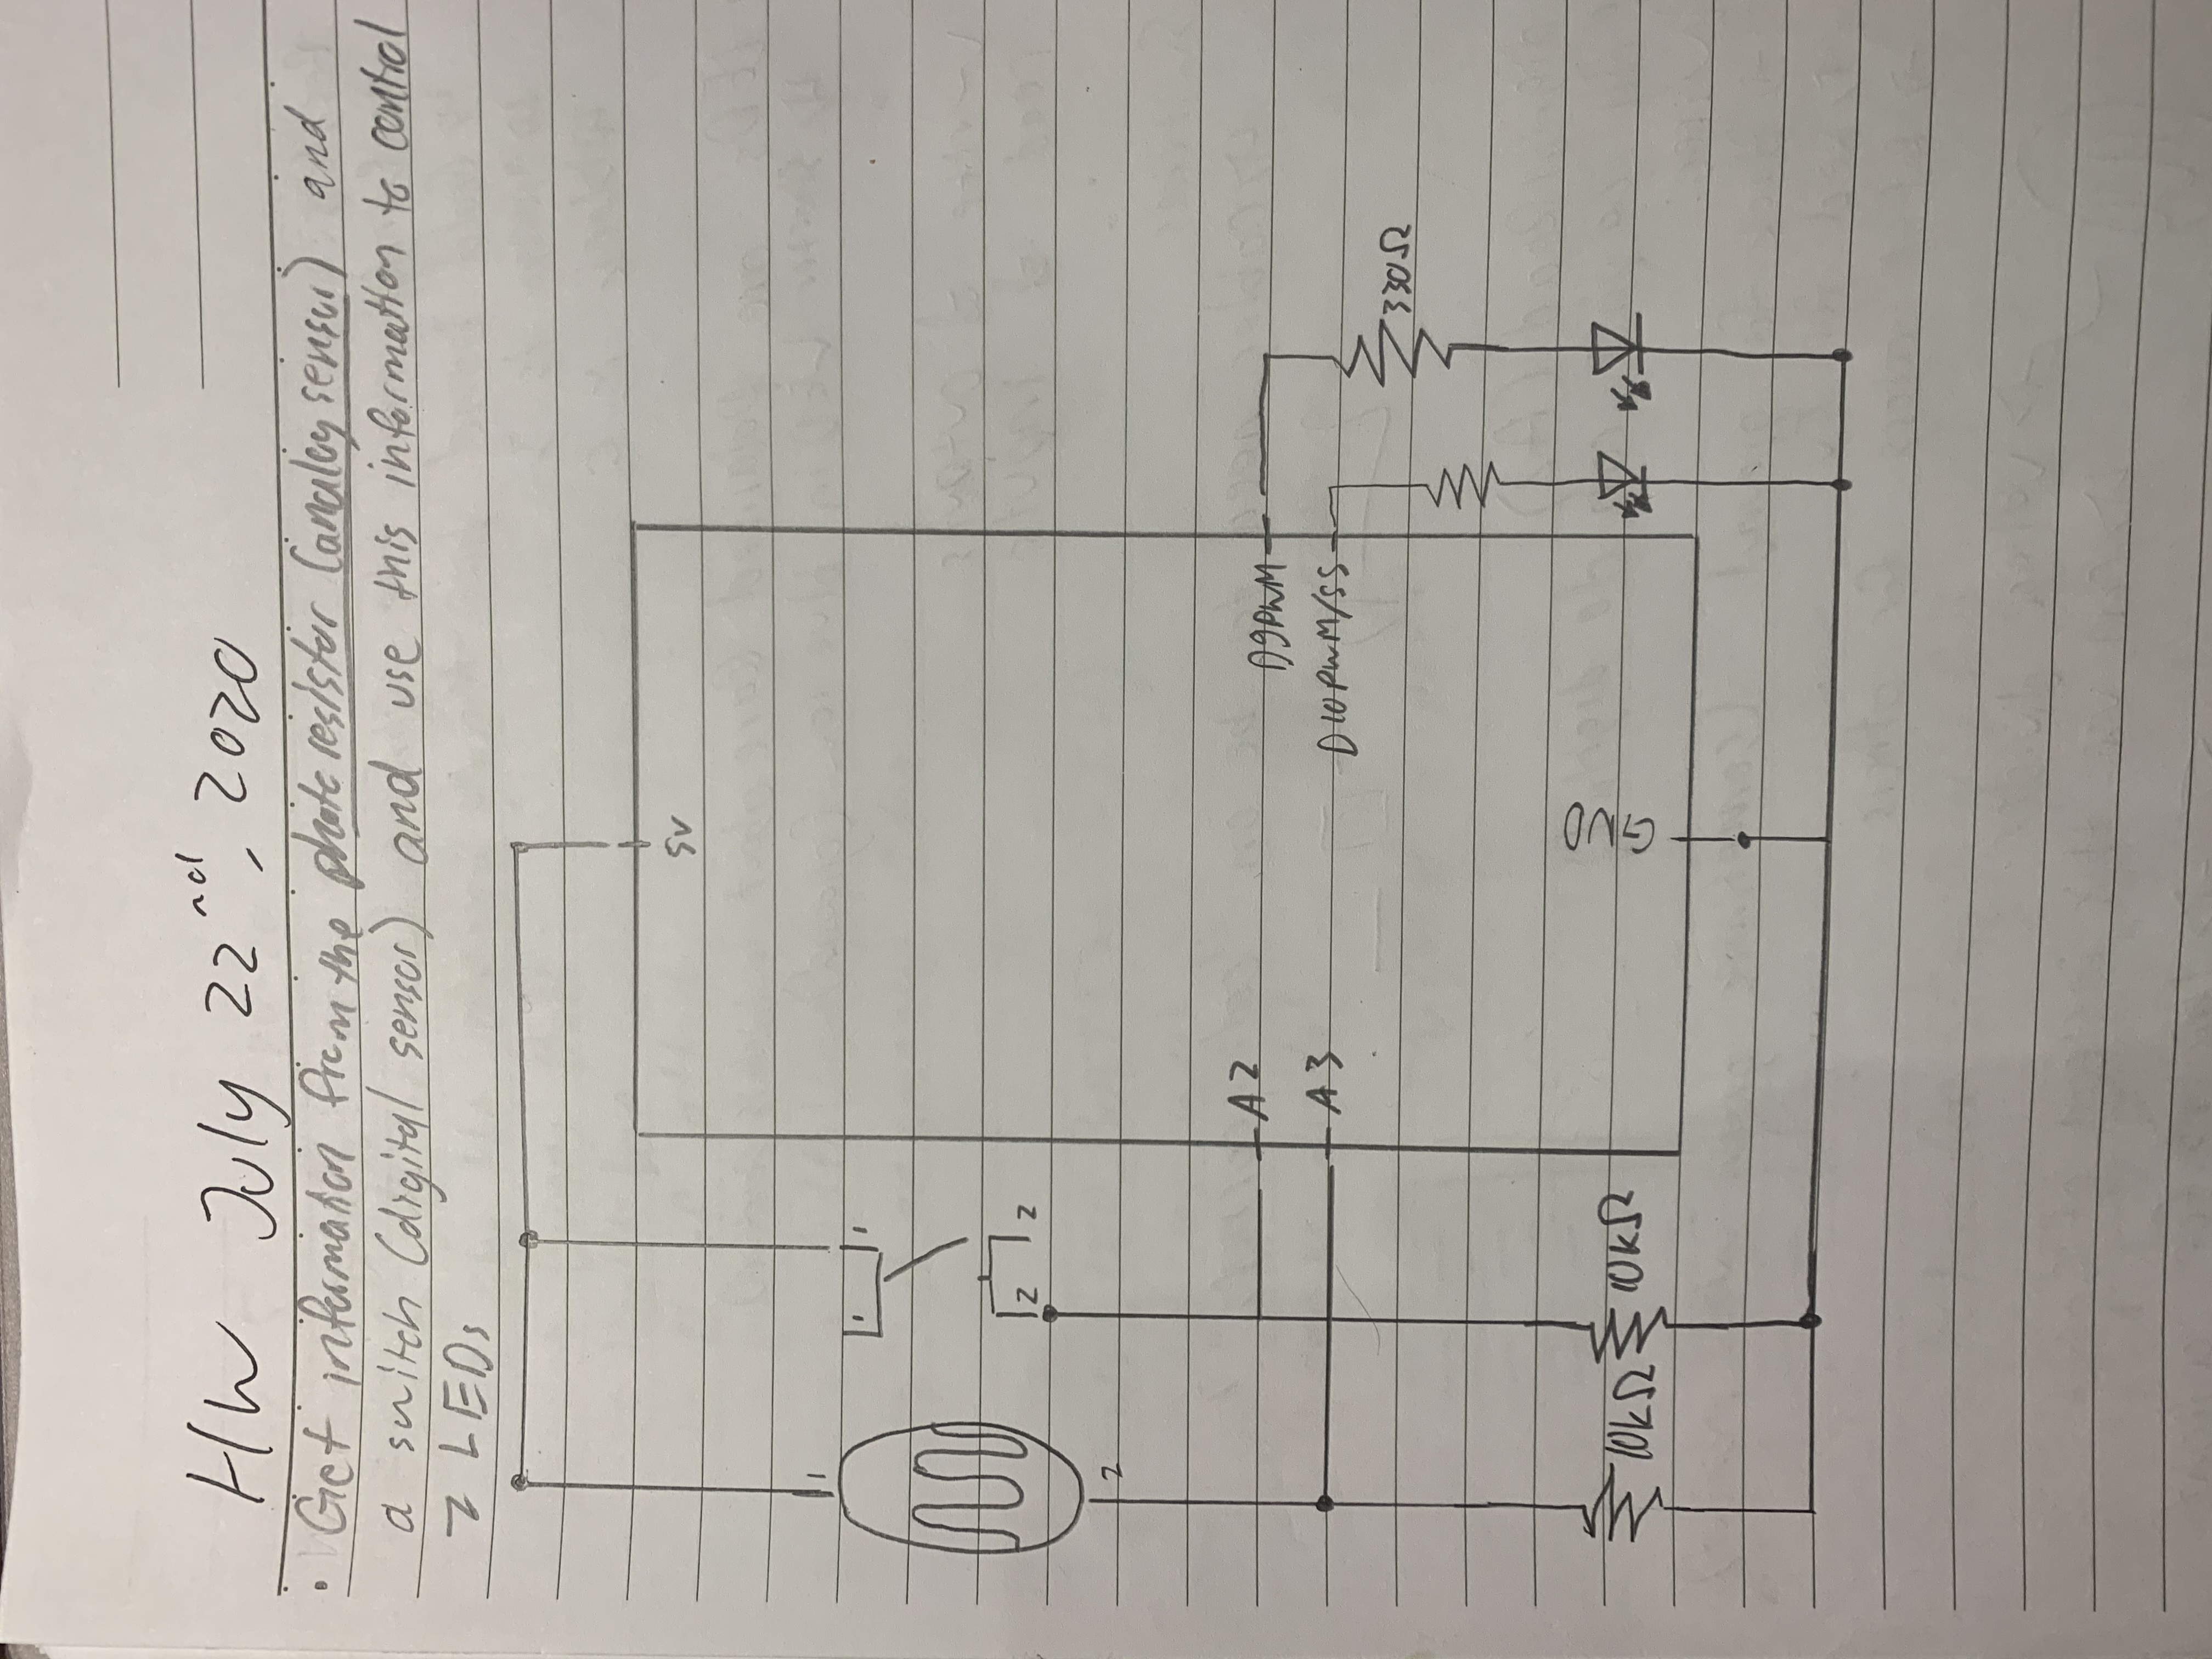 HW July 22nd, 2020
• Get information from the photoresistor (analog sensor) and
a switch (digital sensor) and use this information to control
2 LEDs
5V
1
1 1
2 2
2
A2
D9PWM
A3
D10PWM/SS
330Ω
GND
10kΩ 10kΩ